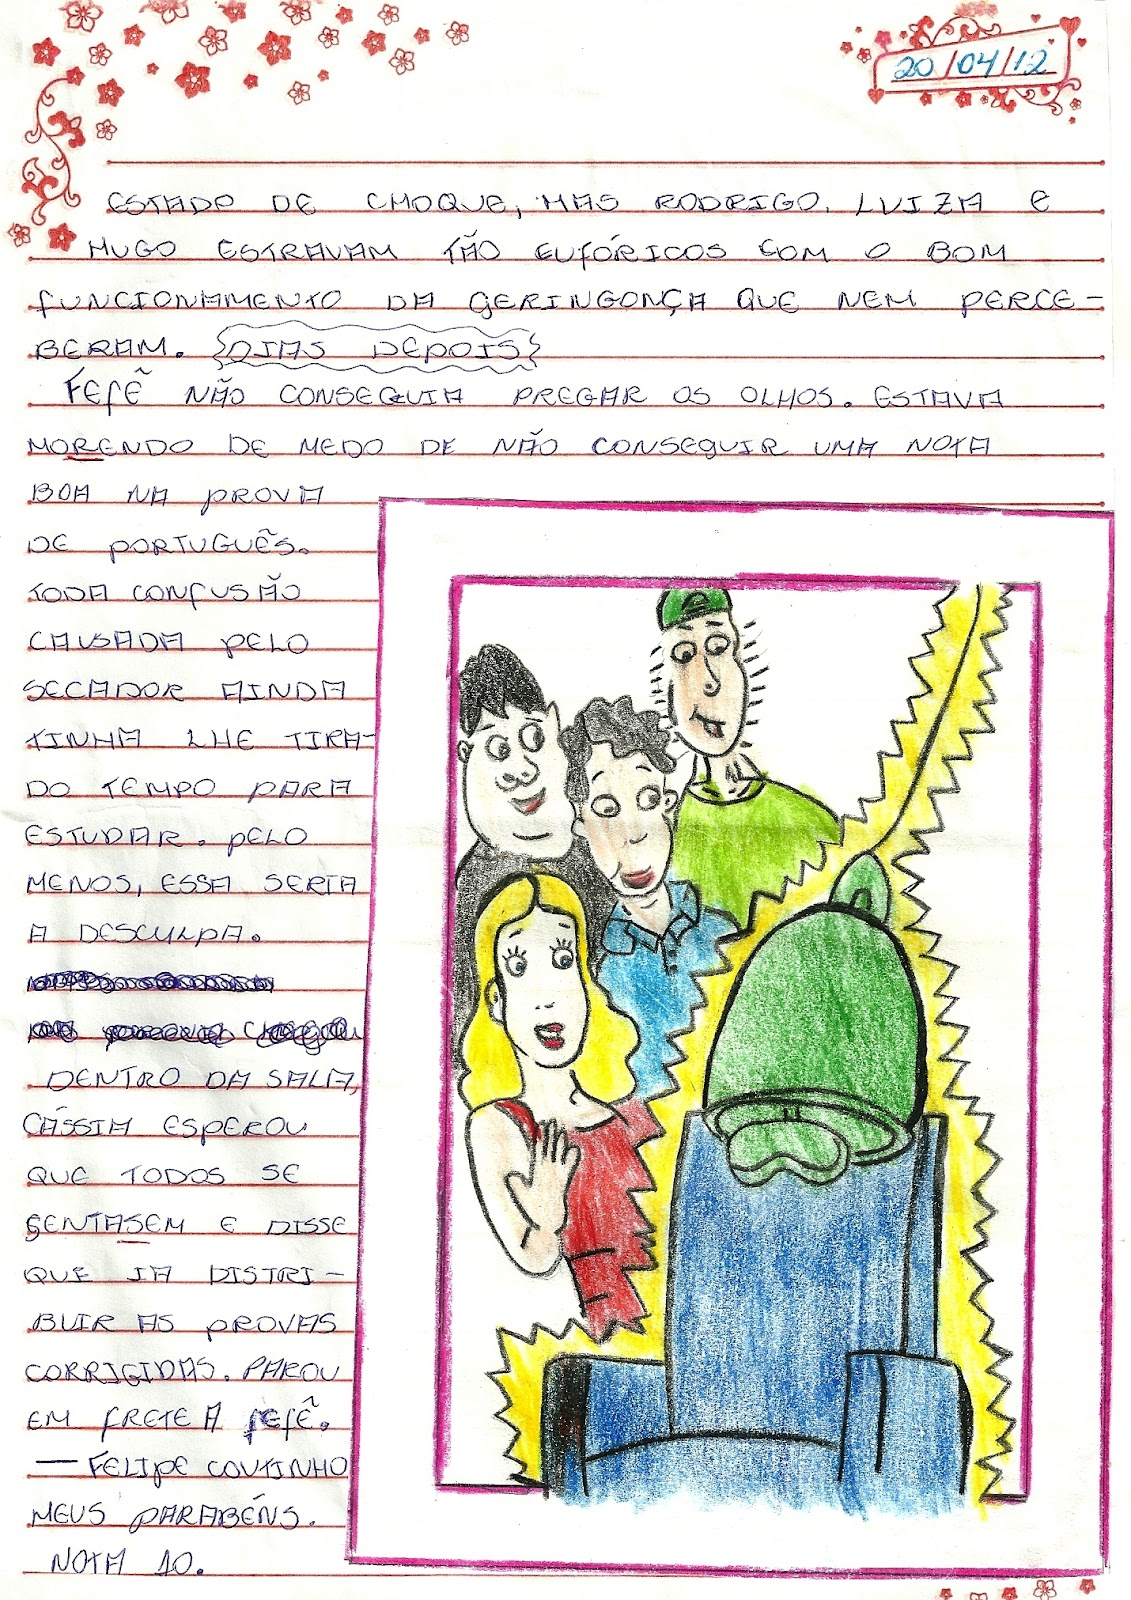 20/04/12
ESTADO DE CHOQUE, MAS RODRIGO, LUIZA E
HUGO ESTRAVAM TÃO EUFÓRICOS COM O BOM
FUNCIONAMENTO DA GERINGONÇA QUE NEM PERCE-
BERAM. {DIAS DEPOIS}
FEFÊ NÃO CONSEGUIA PREGAR OS OLHOS. ESTAVA
MORENDO DE MEDO DE NÃO CONSEGUIR UMA NOTA
BOA NA PROVA
DE PORTUGUÊS.
TODA CONFUSÃO
CAUSADA PELO
SECADOR AINDA
TINHA LHE TIRA-
DO TEMPO PARA
ESTUDAR. PELO
MENOS, ESSA SERIA
A DESCULPA.
DENTRO DA SALA,
CÁSSIA ESPEROU
QUE TODOS SE
SENTASEM E DISSE
QUE IA DISTRI-
BUIR AS PROVAS
CORRIGIDAS. PAROU
EM FRETE A FEFÊ.
— FELIPE COUTINHO
MEUS PARABÉNS.
NOTA 10.